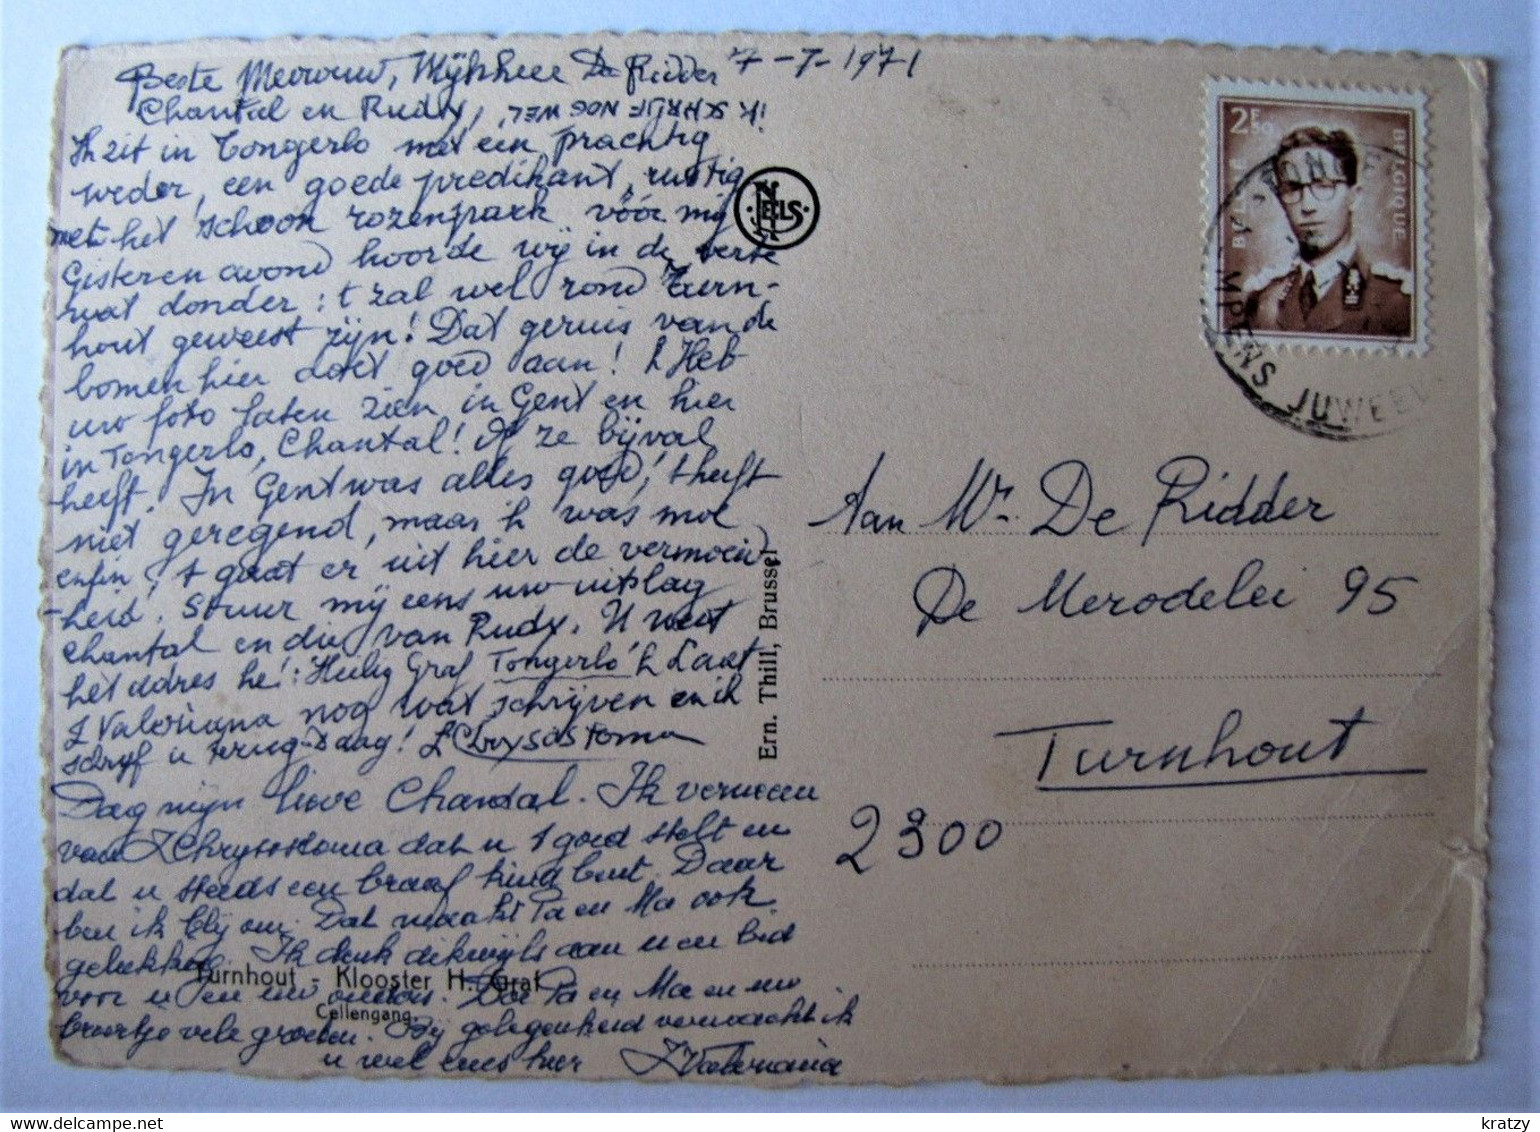 Beste Mevrouw, Mijnheer De Ridder 7-7-1971
Chantal en Rudy,
IK SCHRIJF NOG WEL,
Ik zit in Tongerlo met een prachtig
weder, een goede predikant, rustig
met het schoon rozenpark vóór mij
Gisteren avond hoorde wij in de verte
wat donder: 't zal wel rond Turn-
hout geweest zijn! Dat geruis van de
bomen hier doet goed aan! Heb
uw foto laten zien in Gent en hier
in Tongerlo, Chantal! Of ze bijval
heeft. In Gent was alles goed, 't heeft
niet geregend, maar ik was moe
enfin, 't gaat er uit hier de vermoeid-
heid. Stuur mij eens uw uitslag
Chantal en die van Rudy. U weet
het adres he!: Heilig Graf Tongerlo Laat
Z Valeriana nog wat schrijven en ik
schrijf u terug. Daag! Z Chrysostoma
Dag mijn lieve Chantal. Ik verneem
van Z Chrysostoma dat u 't goed stelt en
dat u steeds een braaf kind bent. Daar
ben ik blij om. Dat maakt Pa en Ma ook
gelukkig. Ik denk dikwijls aan u en bid
voor u en uw ouders. Doe Pa en Ma en uw
broertje vele groeten. Bij gelegenheid verwacht ik
u wel eens hier Z Valeriana
Turnhout - Klooster H. Graf
Cellengang.
NELS
Ern. Thill, Brussel
2F50
BELGIË
BELGIQUE
MPENS JUWEEL
Aan Mr. De Ridder
De Merodelei 95
Turnhout
2300
kratzy
delcampe.net